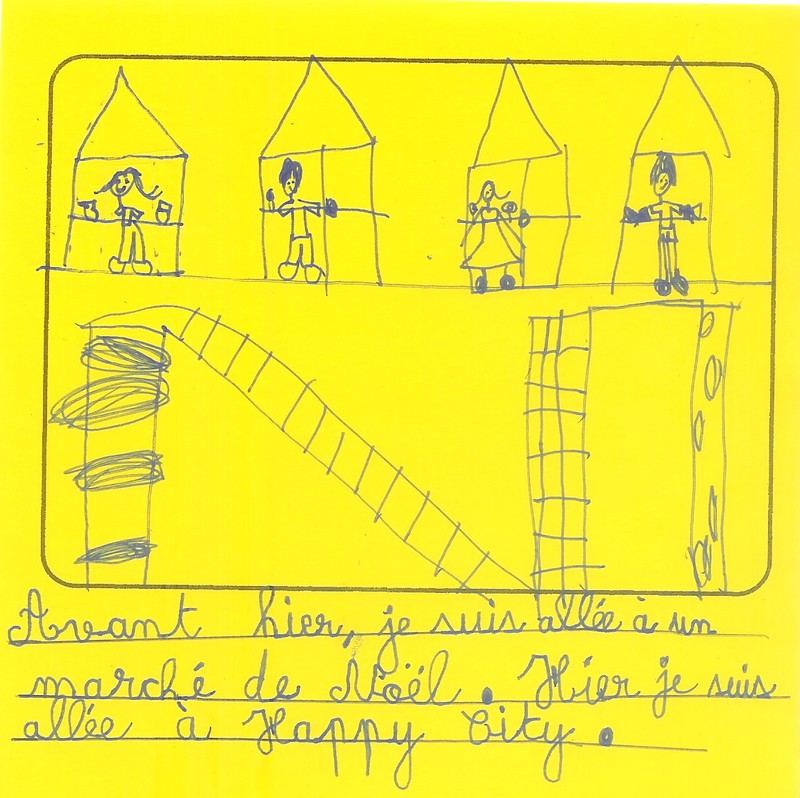 Avant hier, je suis allée à un
marché de Noël. Hier je suis
allée à Happy City.